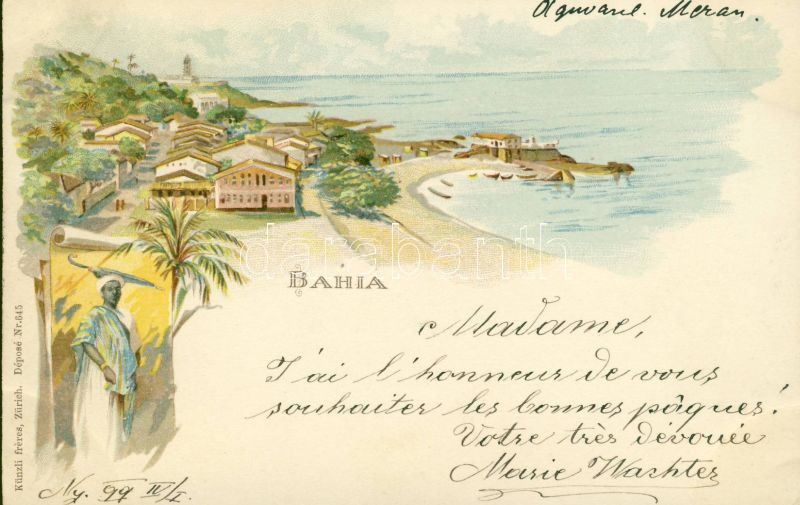 Aquarel. Meran.
darabanth
BAHIA
Madame,
J'ai l'honneur de vous
souhaiter les bonnes pâques!
Votre très dévouée
Marie Wachter
Ny. 99 IV/I.
Künzli frères, Zürich. Déposé Nr. 645